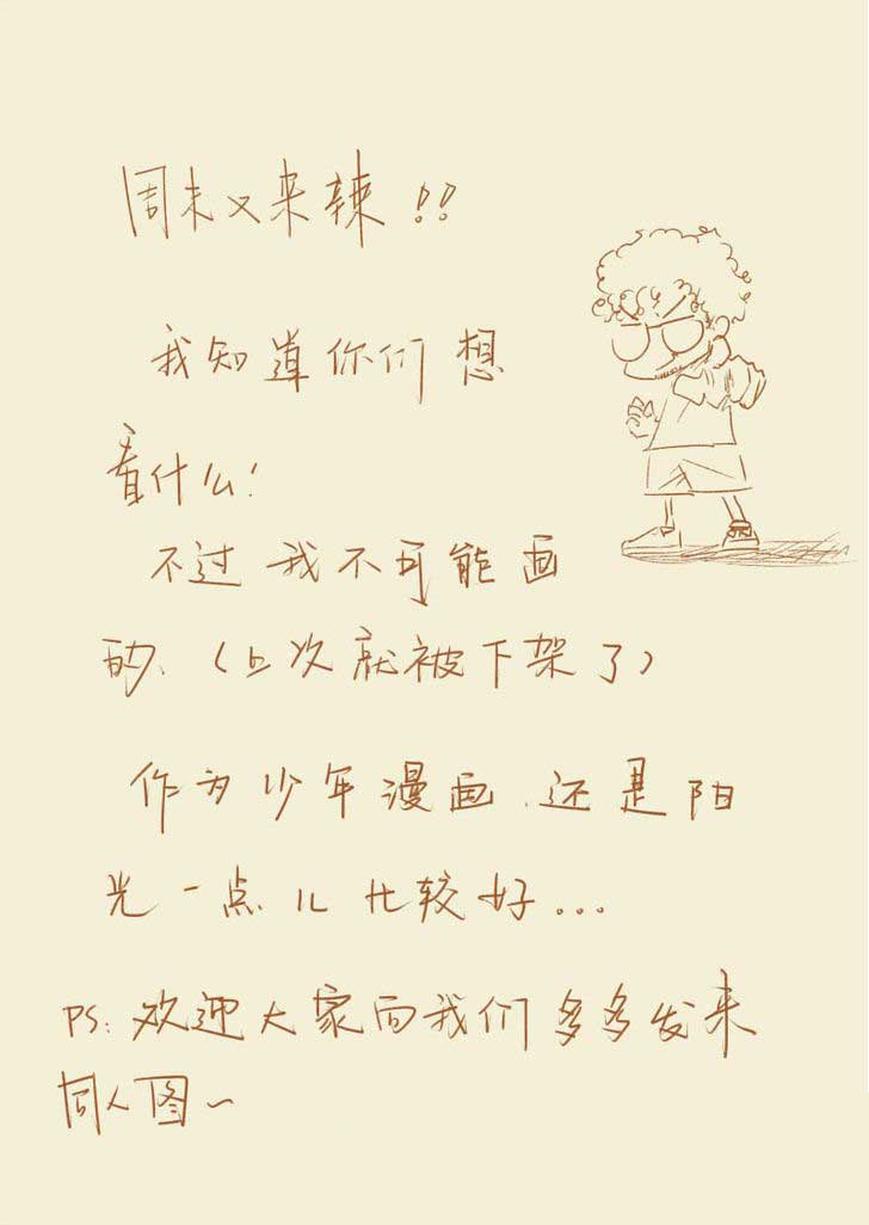 周末又来辣!!
我知道你们想
看什么!
不过我不可能画
的、(上次就被下架了)
作为少年漫画、还是阳
光一点儿比较好...
PS:欢迎大家向我们多多发来
同人图~